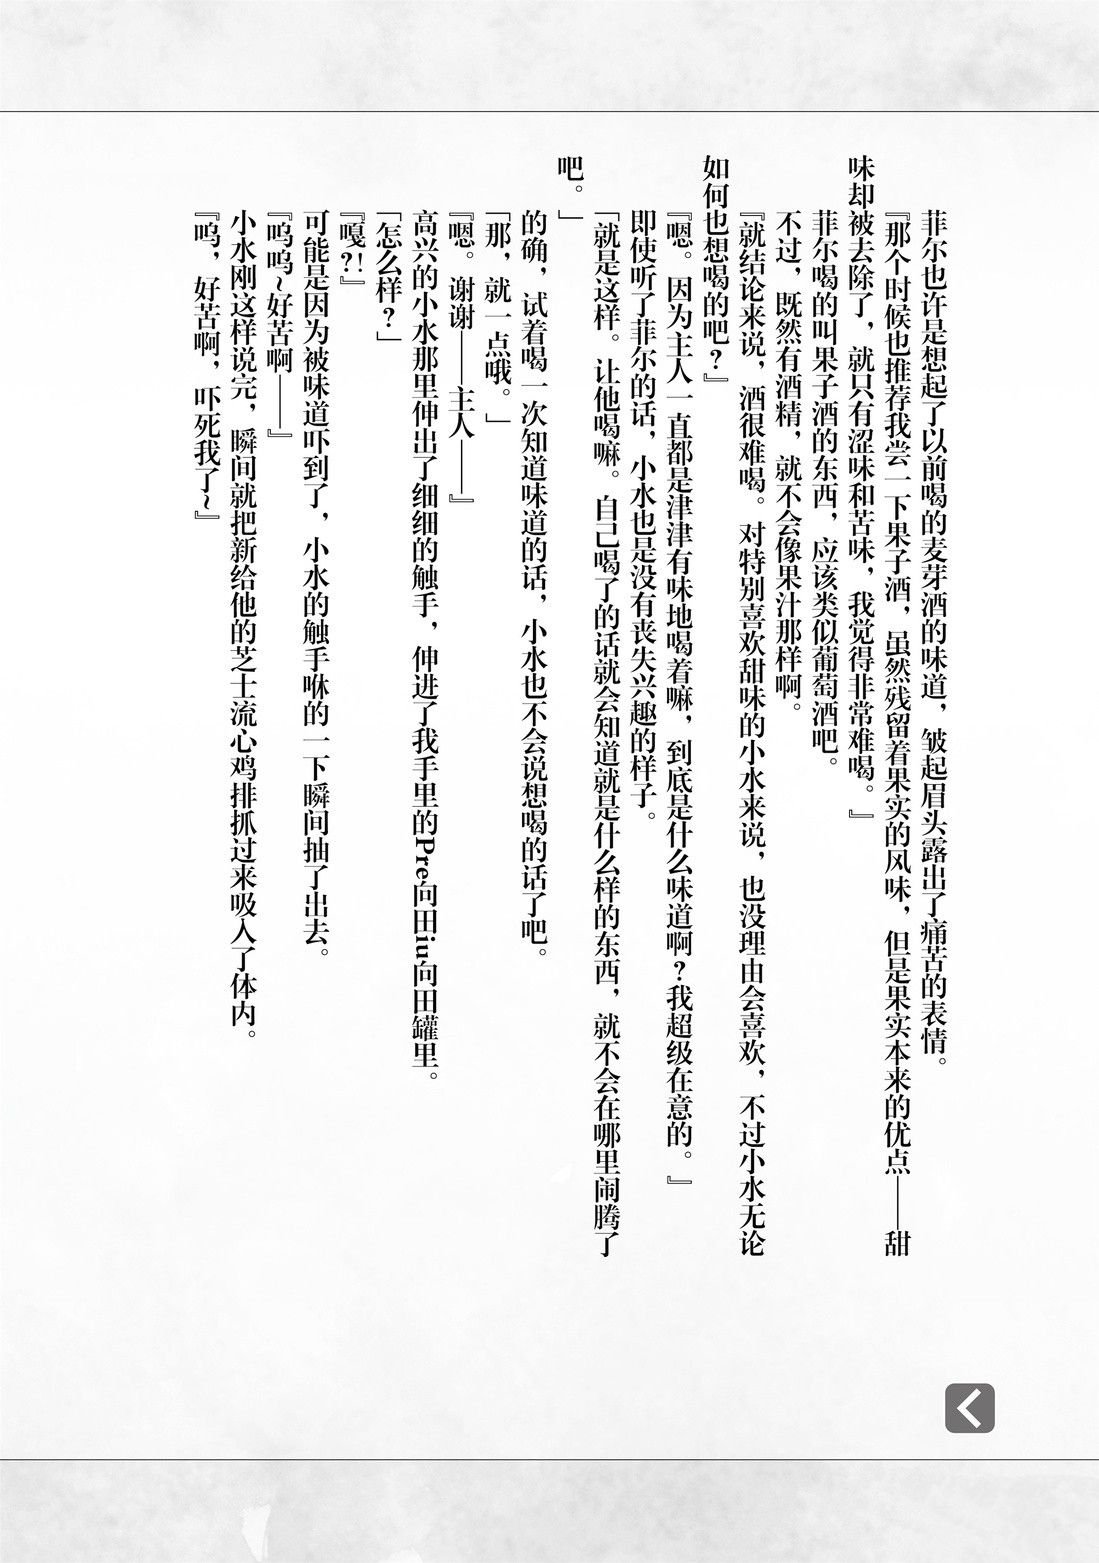 菲尔也许是想起了以前喝的麦芽酒的味道，皱起眉头露出了痛苦的表情。
『那个时候也推荐我尝一下果子酒，虽然残留着果实的风味，但是果实本来的优点——甜
味却被去除了，就只有涩味和苦味，我觉得非常难喝。』
菲尔喝的叫果子酒的东西，应该类似葡萄酒吧。
不过，既然有酒精，就不会像果汁那样啊。
『就结论来说，酒很难喝。对特别喜欢甜味的小水来说，也没理由会喜欢，不过小水无论
如何也想喝的吧？』
『嗯。因为主人一直都是津津有味地喝着嘛，到底是什么味道啊？我超级在意的。』
即使听了菲尔的话，小水也是没有丧失兴趣的样子。
「就是这样。让他喝嘛。自己喝了的话就会知道就是什么样的东西，就不会在哪里闹腾了
吧。」
的确，试着喝一次知道味道的话，小水也不会说想喝的话了吧。
「那，就一点哦。」
『嗯。谢谢——主人——』
高兴的小水那里伸出了细细的触手，伸进了我手里的Pre向田iu向田罐里。
「怎么样？」
『嘎?!』
可能是因为被味道吓到了，小水的触手咻的一下瞬间抽了出去。
『呜呜~好苦啊——』
小水刚这样说完，瞬间就把新给他的芝士流心鸡排抓过来吸入了体内。
『呜，好苦啊，吓死我了~』